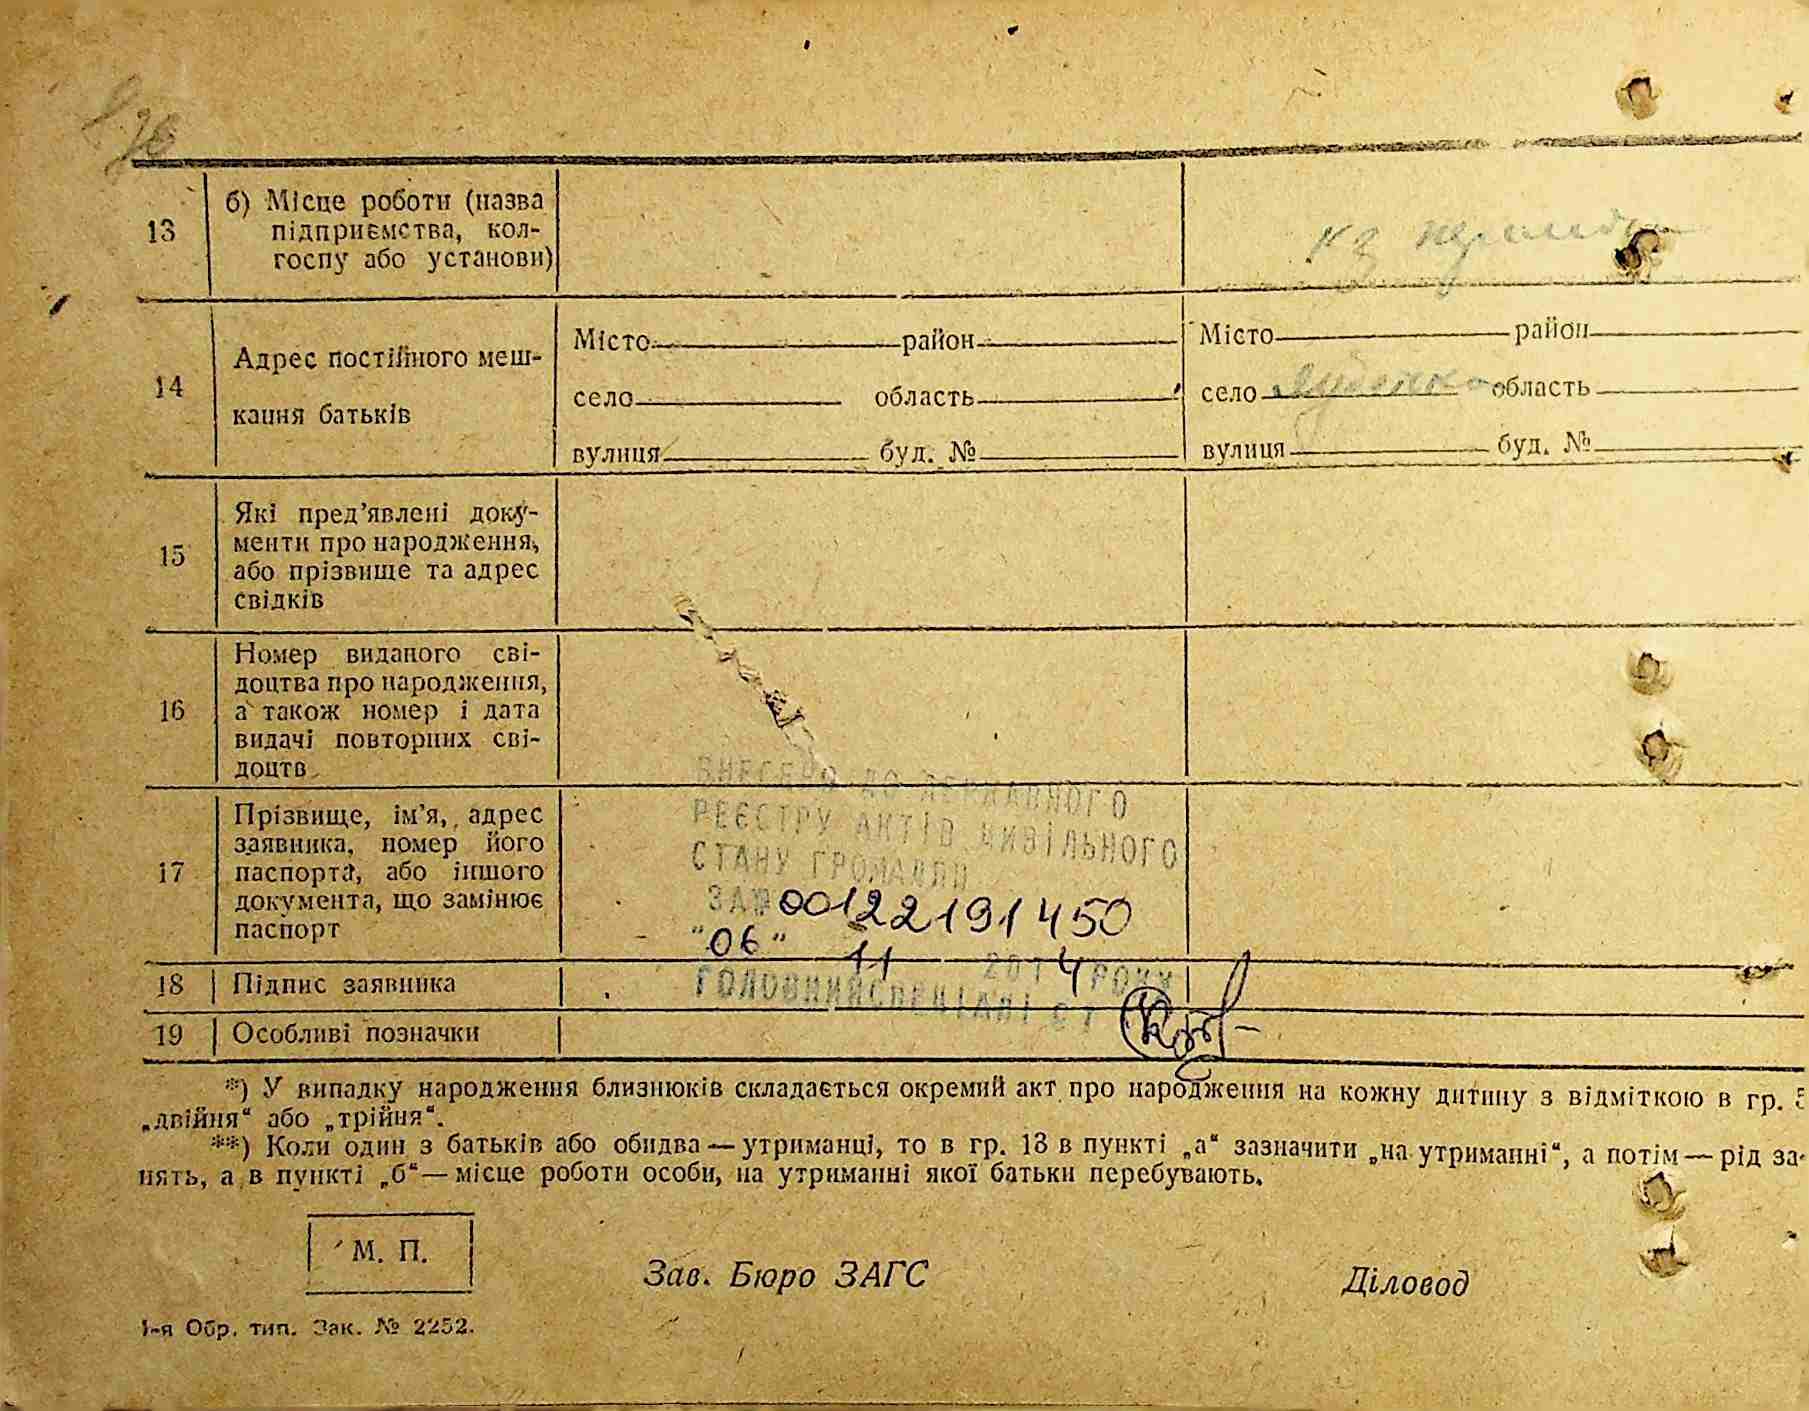 13
б) Місце роботи (назва
підприємства, кол-
госпу або установи)
кз
14
Адрес постійного меш-
кання батьків
Місто район
село область
вулиця буд. №
Місто район
село область
вулиця буд. №
15
Які пред’явлені доку-
менти про народження,
або прізвище та адрес
свідків
16
Номер виданого сві-
доцтва про народження,
а також номер і дата
видачі повторних сві-
доцтв
17
Прізвище, ім’я, адрес
заявника, номер його
паспорта, або іншого
документа, що замінює
паспорт
ВНЕСЕНО ДО ДЕРЖАВНОГО
РЕЄСТРУ АКТІВ ЦИВІЛЬНОГО
СТАНУ ГРОМАДЯН
ЗА № 00122191450
"06" 11 2014 РОКУ
ГОЛОВНИЙ СПЕЦІАЛІСТ
18 Підпис заявника
19 Особливі позначки
*) У випадку народження близнюків складається окремий акт про народження на кожну дитину з відміткою в гр. 5
„двійня“ або „трійня“.
**) Коли один з батьків або обидва — утриманці, то в гр. 13 в пункті „а“ зазначити „на утриманні“, а потім — рід за-
нять, а в пункті „б“ — місце роботи особи, на утриманні якої батьки перебувають.
М. П.
Зав. Бюро ЗАГС
Діловод
1-я Обр. тип. Зак. № 2252.